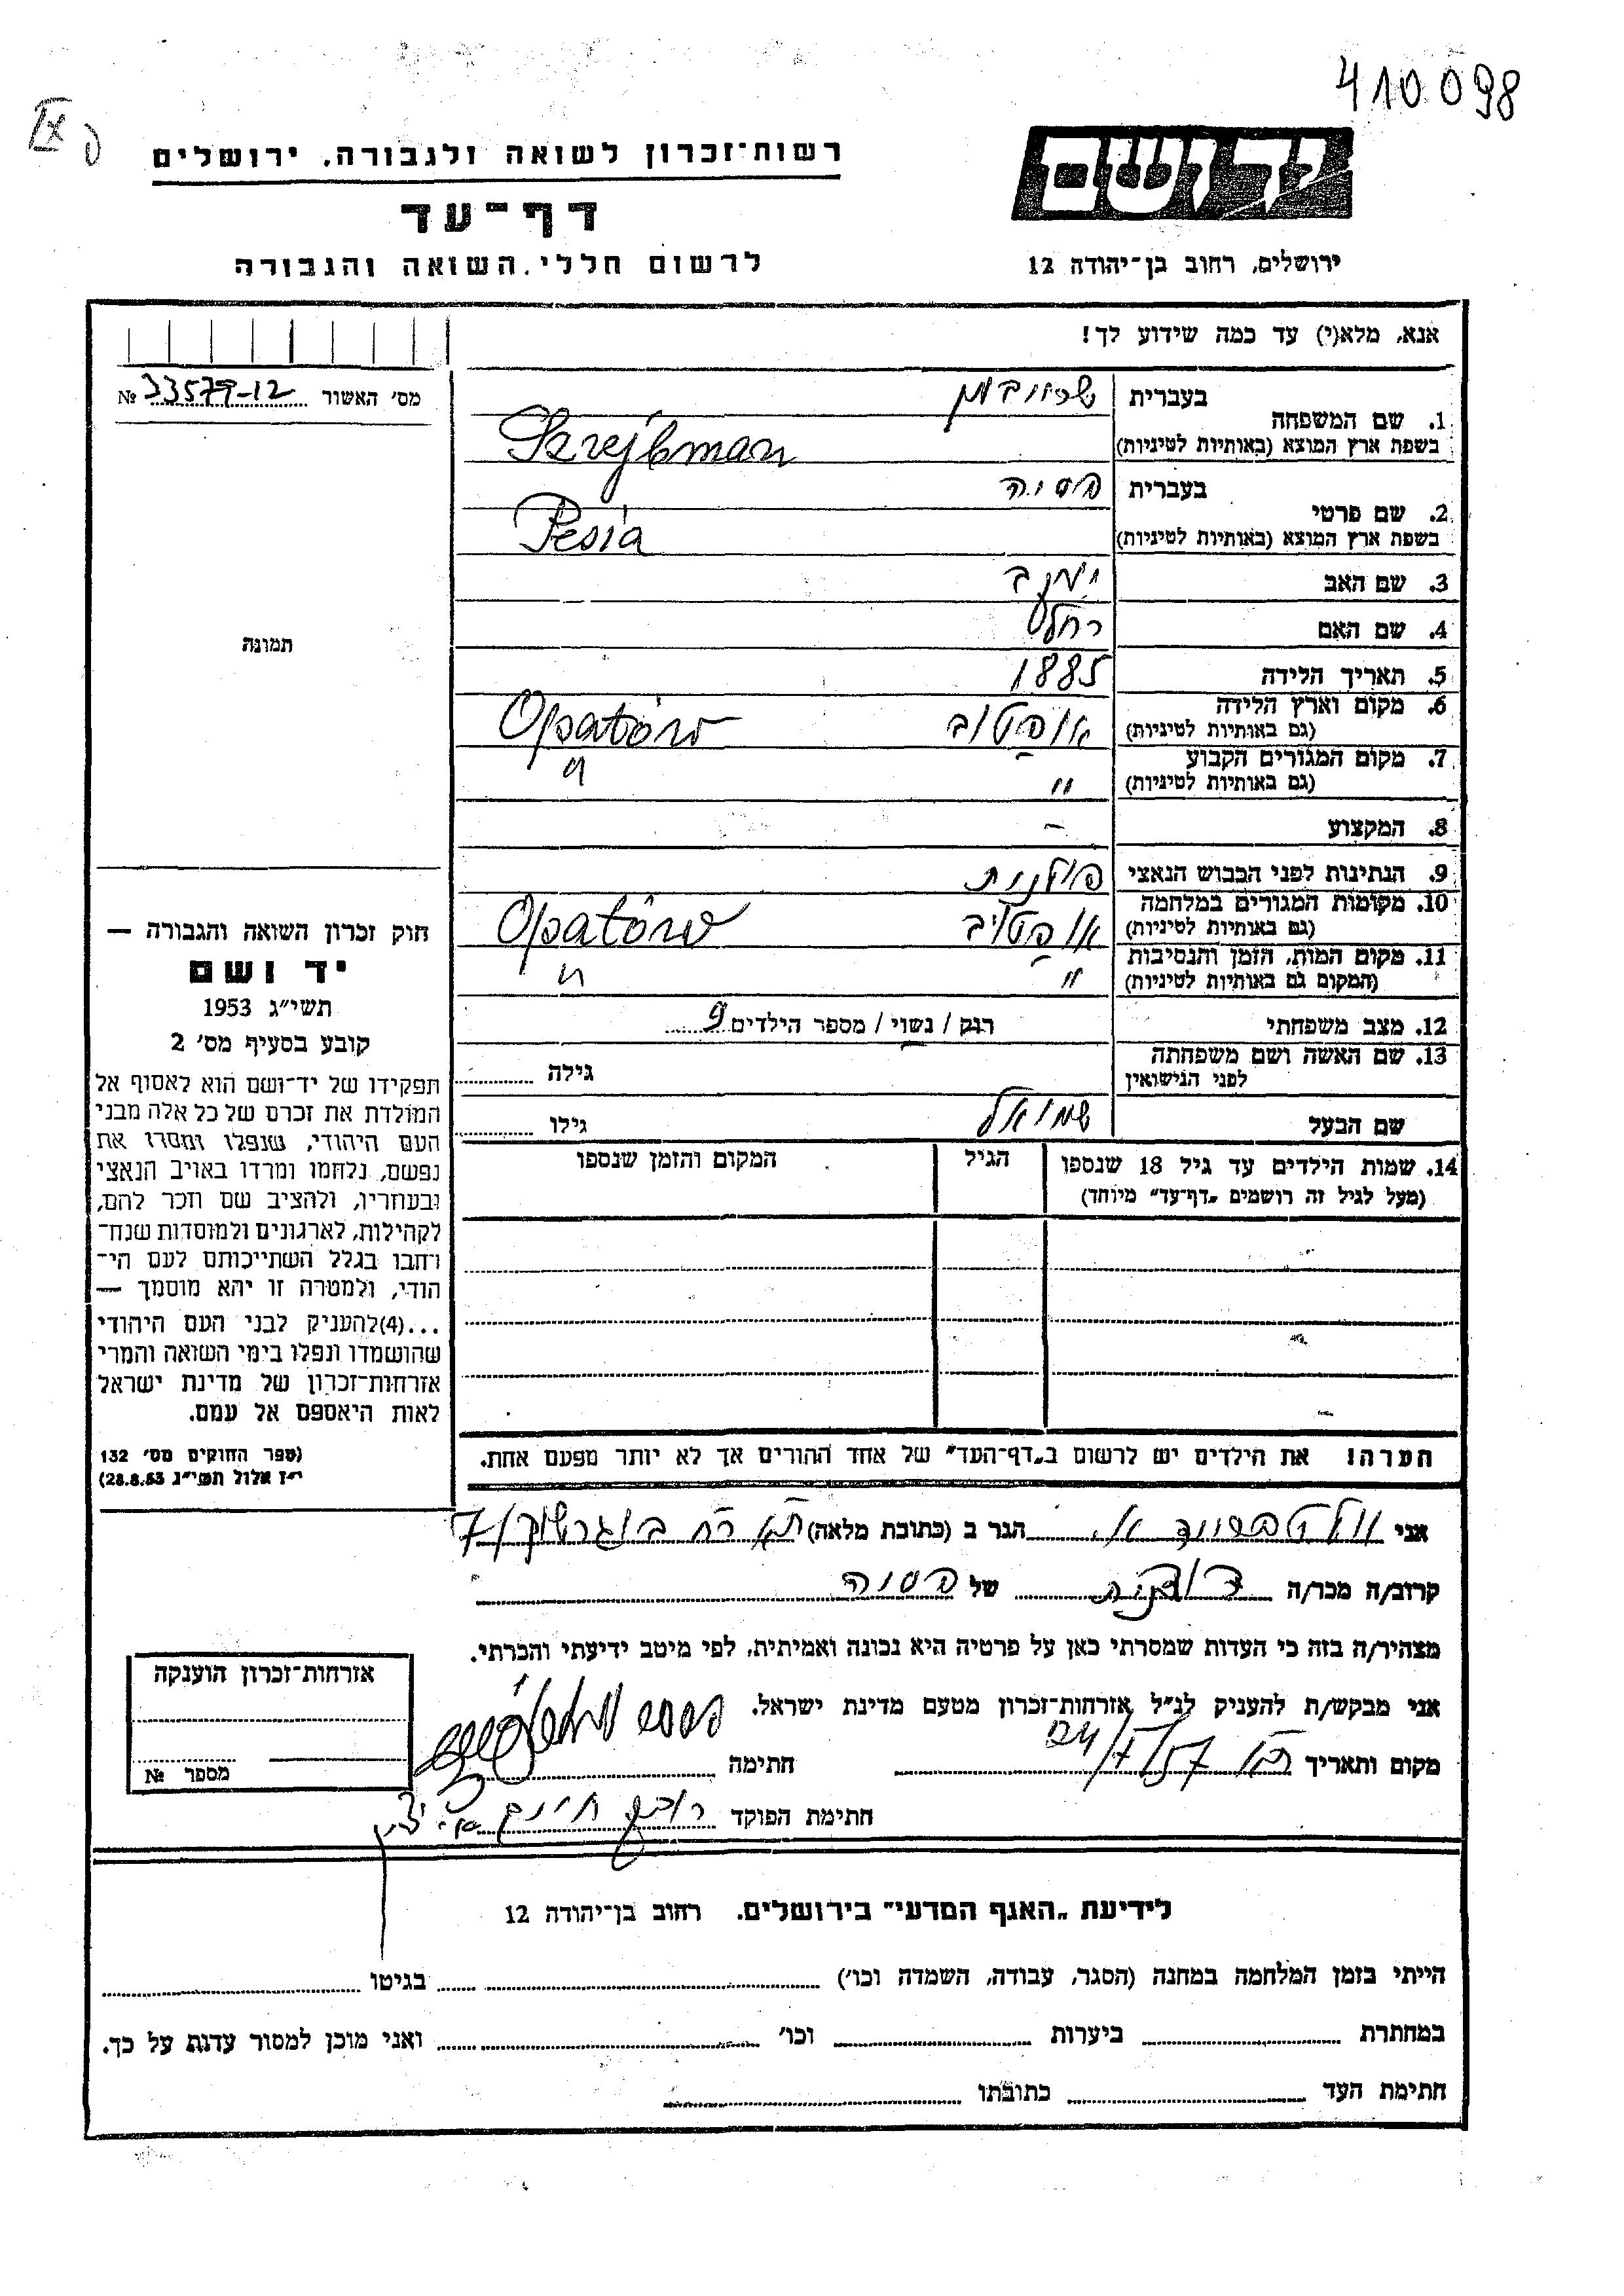 410098
IX
רשות־זכרון לשואה ולגבורה, ירושלים
דף־עד
לרשום חללי השואה והגבורה
יד ושם
ירושלים, רחוב בן־יהודה 12
אנא, מלא(י) עד כמה שידוע לך!
מס׳ האשור № 33579-12
1. שם המשפחה
בעברית שרייבמן
בשפת ארץ המוצא (באותיות לטיניות) Szrejbman
2. שם פרטי
בעברית פסיה
בשפת ארץ המוצא (באותיות לטיניות) Pesia
3. שם האב יעקב
4. שם האם רחל
5. תאריך הלידה 1885
6. מקום וארץ הלידה אופטוב Opatów
(גם באותיות לטיניות)
7. מקום המגורים הקבוע
(גם באותיות לטיניות) " "
8. המקצוע -
9. הנתינות לפני הכבוש הנאצי פולנית
10. מקומות המגורים במלחמה
(גם באותיות לטיניות) אופטוב Opatów
11. מקום המות, הזמן והנסיבות
(המקום גם באותיות לטיניות) " "
12. מצב משפחתי רוק / נשוי / מספר הילדים 9
13. שם האשה ושם משפחתה
לפני הנישואין גילה
שם הבעל שמואל גילו
14. שמות הילדים עד גיל 18 שנספו הגיל המקום והזמן שנספו
(מעל לגיל זה רושמים „דף־עד” מיוחד)
הערה! את הילדים יש לרשום ב„דף־העד” של אחד ההורים אך לא יותר מפעם אחת.
תמונה
חוק זכרון השואה והגבורה —
יד ושם
תשי״ג 1953
קובע בסעיף מס׳ 2
תפקידו של יד־ושם הוא לאסוף אל
המולדת את זכרם של כל אלה מבני
העם היהודי, שנפלו ומסרו את
נפשם, נלחמו ומרדו באויב הנאצי
ובעוזריו, ולהציב שם וזכר להם,
לקהילות, לארגונים ולמוסדות שנח־
רחבו בגלל השתייכותם לעם הי־
הודי, ולמטרה זו יהא מוסמך —
...(4)להעניק לבני העם היהודי
שהושמדו ונפלו בימי השואה והמרי
אזרחות־זכרון של מדינת ישראל
לאות היאספם אל עמם.
(ספר החוקים מס׳ 132
י״ז אלול תשי״ג 28.8.53)
אני הגר ב (כתובת מלאה) ת״א רח׳ בוגרשוב 7
קרוב/ה מכר/ה של פסיה
מצהיר/ה בזה כי העדות שמסרתי כאן על פרטיה היא נכונה ואמיתית, לפי מיטב ידיעתי והכרתי.
אני מבקש/ת להעניק לנ״ל אזרחות־זכרון מטעם מדינת ישראל.
מקום ותאריך ת״א חתימה
חתימת הפוקד
אזרחות־זכרון הוענקה
מספר №
לידיעת „האגף המדעי” בירושלים. רחוב בן־יהודה 12
הייתי בזמן המלחמה במחנה (הסגר, עבודה, השמדה וכו׳) בגיטו
במחתרת ביערות וכו׳ ואני מוכן למסור עדות על כך.
חתימת העד כתובתו